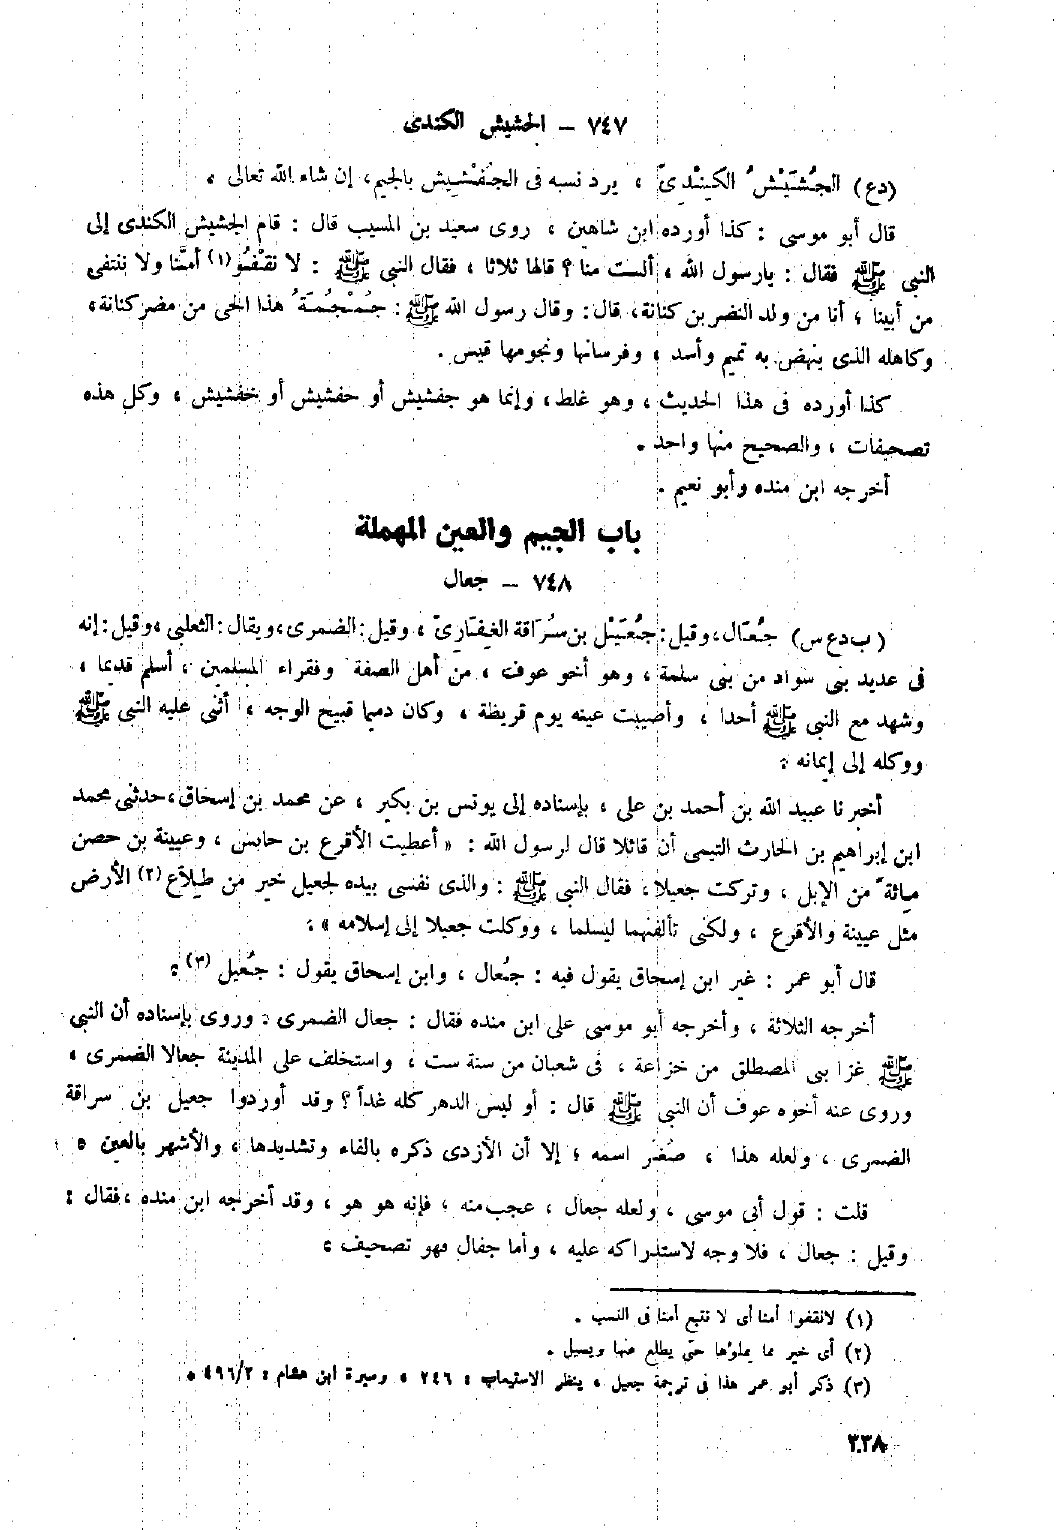 ٧٤٧ – الجشيش الكندى
(دع) الجُشَيْشُ الكِنْدِىّ ، يرد نسبه فى الجَفْشِيش بالجيم، إن شاء الله تعالى .
قال أبو موسى : كذا أورده ابن شاهين ، روى سعيد بن المسيب قال : قام الجشيش الكندى إلى
النبى ﷺ فقال : يارسول الله ، ألست منا ؟ قالها ثلاثا ، فقال النبى ﷺ : لا نقْفُو(١) أمَّنا ولا ننتفى
من أبينا ؛ أنا من ولد النضر بن كنانة، قال : وقال رسول الله ﷺ : جُمْجُمَةُ هذا الحى من مضر كنانة،
وكاهله الذى ينهض به تميم وأسد ، وفرسانها ونجومها قيس .
كذا أورده فى هذا الحديث ، وهو غلط، وإنما هو جفشيش أو حفشيش أو خفشيش ، وكل هذه
تصحيفات ، والصحيح منها واحد .
أخرجه ابن منده وأبو نعيم .
باب الجيم والعين المهملة
٧٤٨ – جعال
(ب دع س) جُعَال، وقيل : جُعَيْل بن سُرَاقة الغِفَارِىّ ، وقيل : الضمرى، ويقال : الثعلبى ، وقيل : إنه
فى عديد بنى سواد من بنى سلمة ، وهو أخو عوف ، من أهل الصفة وفقراء المسلمين ، أسلم قديما ،
وشهد مع النبى ﷺ أحدا ، وأصيبت عينه يوم قريظة ، وكان دميما قبيح الوجه ، أثنى عليه النبى ﷺ
ووكله إلى إيمانه :
أخبرنا عبيد الله بن أحمد بن على ، بإسناده إلى يونس بن بكير ، عن محمد بن إسحاق، حدثنى محمد
ابن إبراهيم بن الحارث التيمى أن قائلا قال لرسول الله : « أعطيت الأقرع بن حابس ، وعيينة بن حصن
مِائةً من الإبل ، وتركت جعيلا، فقال النبى ﷺ : والذى نفسى بيده لجعيل خير من طِلاَع(٢) الأرض
مثل عيينة والأقرع ، ولكنى تألفتهما ليسلما ، ووكلت جعيلا إلى إسلامه » .
قال أبو عمر : غير ابن إسحاق يقول فيه : جُعال ، وابن إسحاق يقول : جُعيل (٣) .
أخرجه الثلاثة ، وأخرجه أبو موسى على ابن منده فقال : جعال الضمرى : وروى بإسناده أن النبى
ﷺ غزا بنى المصطلق من خزاعة ، فى شعبان من سنة ست ، واستخلف على المدينة جعالا الضمرى ،
وروى عنه أخوه عوف أن النبى ﷺ قال : أو ليس الدهر كله غداً ؟ وقد أوردوا جعيل بن سراقة
الضمرى ، ولعله هذا ، صُغّر اسمه ؛ إلا أن الأزدى ذكره بالفاء وتشديدها ، والأشهر بالعين .
قلت : قول أبى موسى ، ولعله جعال ، عجب منه ، فإنه هو هو ، وقد أخرجه ابن منده ، فقال :
وقيل : جعال ، فلا وجه لاستدراكه عليه ، وأما جفال فهو تصحيف .
(١) لانقفوا أمنا أى لا نتبع أمنا فى النسب .
(٢) أى خير مما يملؤها حتى يطلع منها ويسيل .
(٣) ذكر أبو عمر هذا فى ترجمة جعيل ، ينظر الاستيعاب : ٢٤٦ ، وسيرة ابن هشام : ٤٩٦/٢ .
٣٣٨